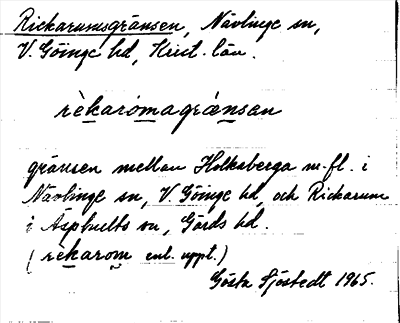 Rickarumsgränsen, Nävlinge sn,
V. Göinge hd, Krist. län.
rèkarómagrǽnsan
gränsen mellan Holkaberga m.fl. i
Nävlinge sn, V. Göinge hd, och Rickarum
i Äsphults sn, Gärds hd.
(rekarom enl. uppt.)
Gösta Sjöstedt 1965.